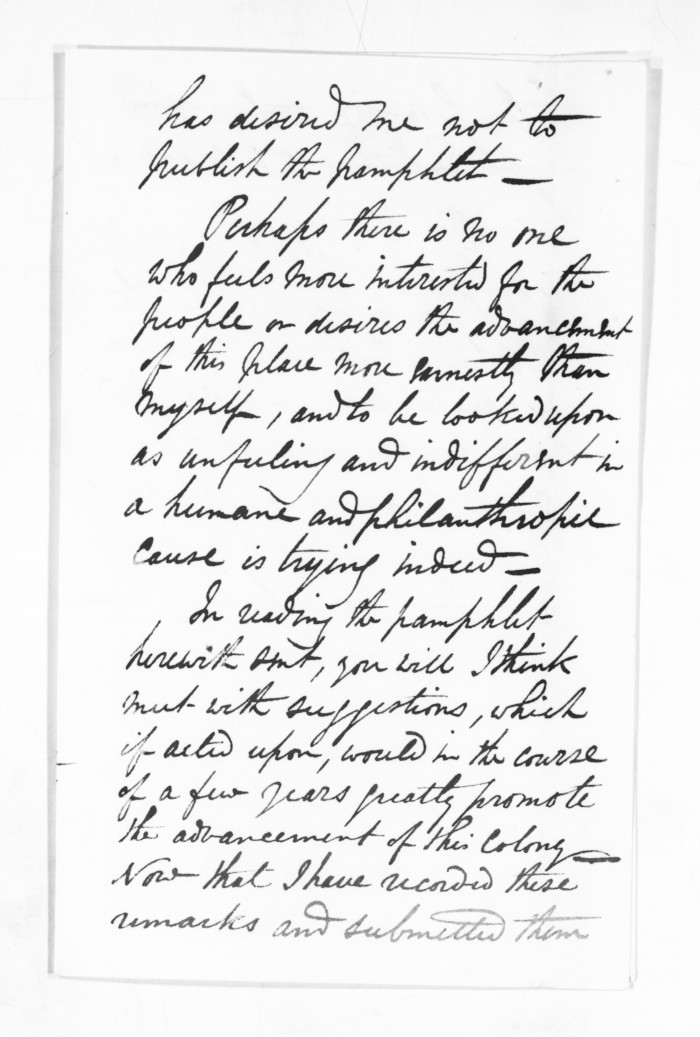 has desired me not to
publish the pamphlet —
Perhaps there is no one
who feels more interested for the
people or desires the advancement
of this place more earnestly than
myself, and to be looked upon
as unfeeling and indifferent in
a humane and philanthropic
cause is trying indeed —
In reading the pamphlet
herewith sent, you will I think
meet with suggestions, which
if acted upon, would in the course
of a few years greatly promote
the advancement of this Colony —
Now that I have recorded these
remarks and submitted them